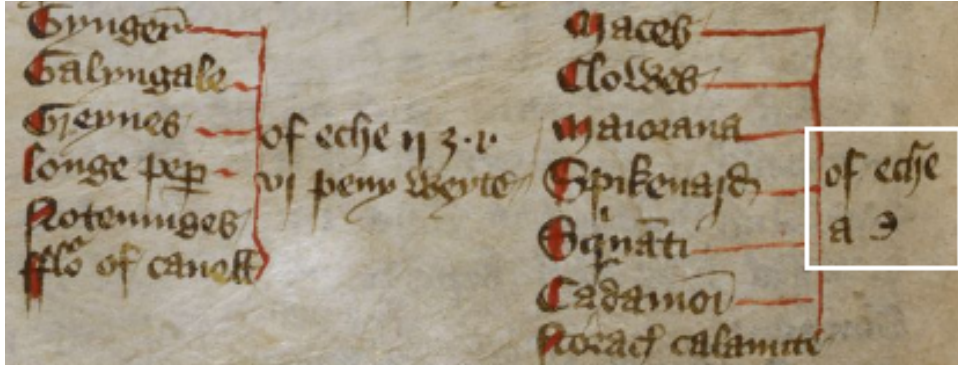 Gynger
Galyngale
Greynes
longe pep
Notemuges
fflo of canell
of eche ij ʒ . v
vj peny weyte
Maces
Clowes
Maiorana
Spikenard
Squinati
Cadamoi
Storac calamite
of eche
a ℈